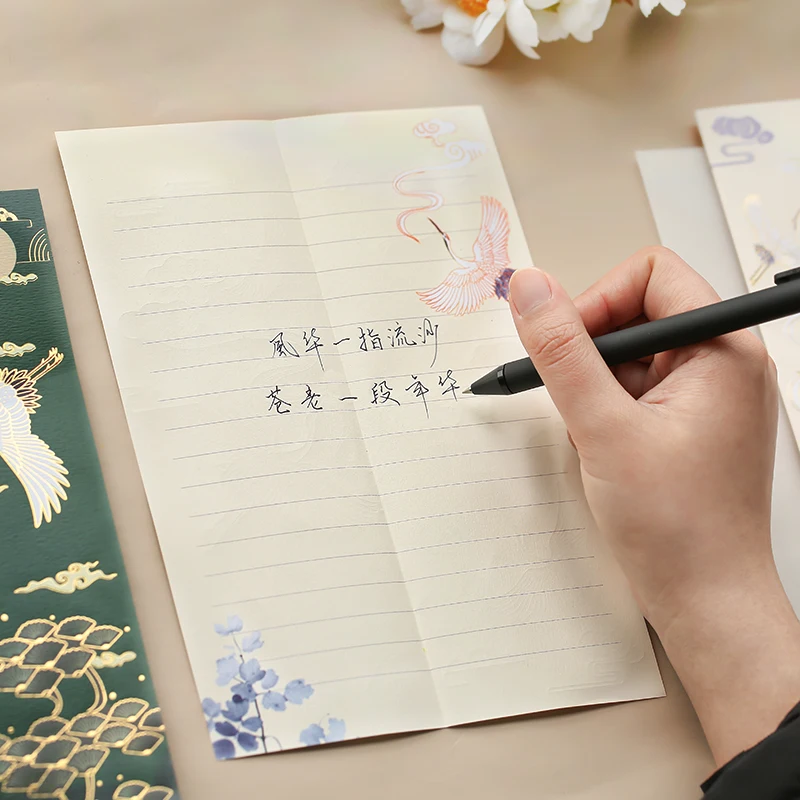 風华一指流沙
苍老一段年华